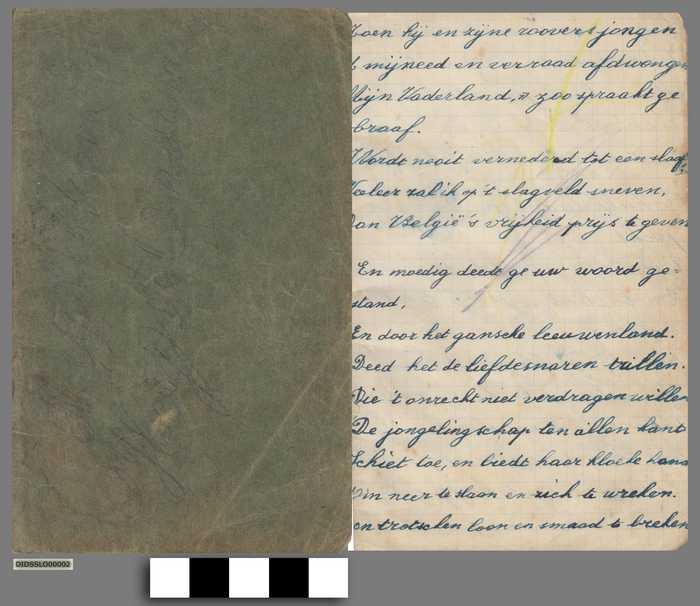 Toen hij en zijne roovers jongen
mijneed en verraad afdwongen
Mijn Vaderland, " zoo spraakt ge
braaf.
Wordt nooit vernederd tot een slaaf
Veeleer zal ik op 't slagveld sneven,
Dan België's vrijheid prijs te geven
En moedig deede ge uw woord ge-
stand,
En door het gansche leeuwenland.
Deed het de liefdesnaren trillen.
Die 't onrecht niet verdragen willen
De jongelingschap ten allen kant
Schiet toe, en biedt haar kloeke hand
Om neer te slaan en zich te wreken.
en trotschen loon en smaad te breken
DIDSSLO00002